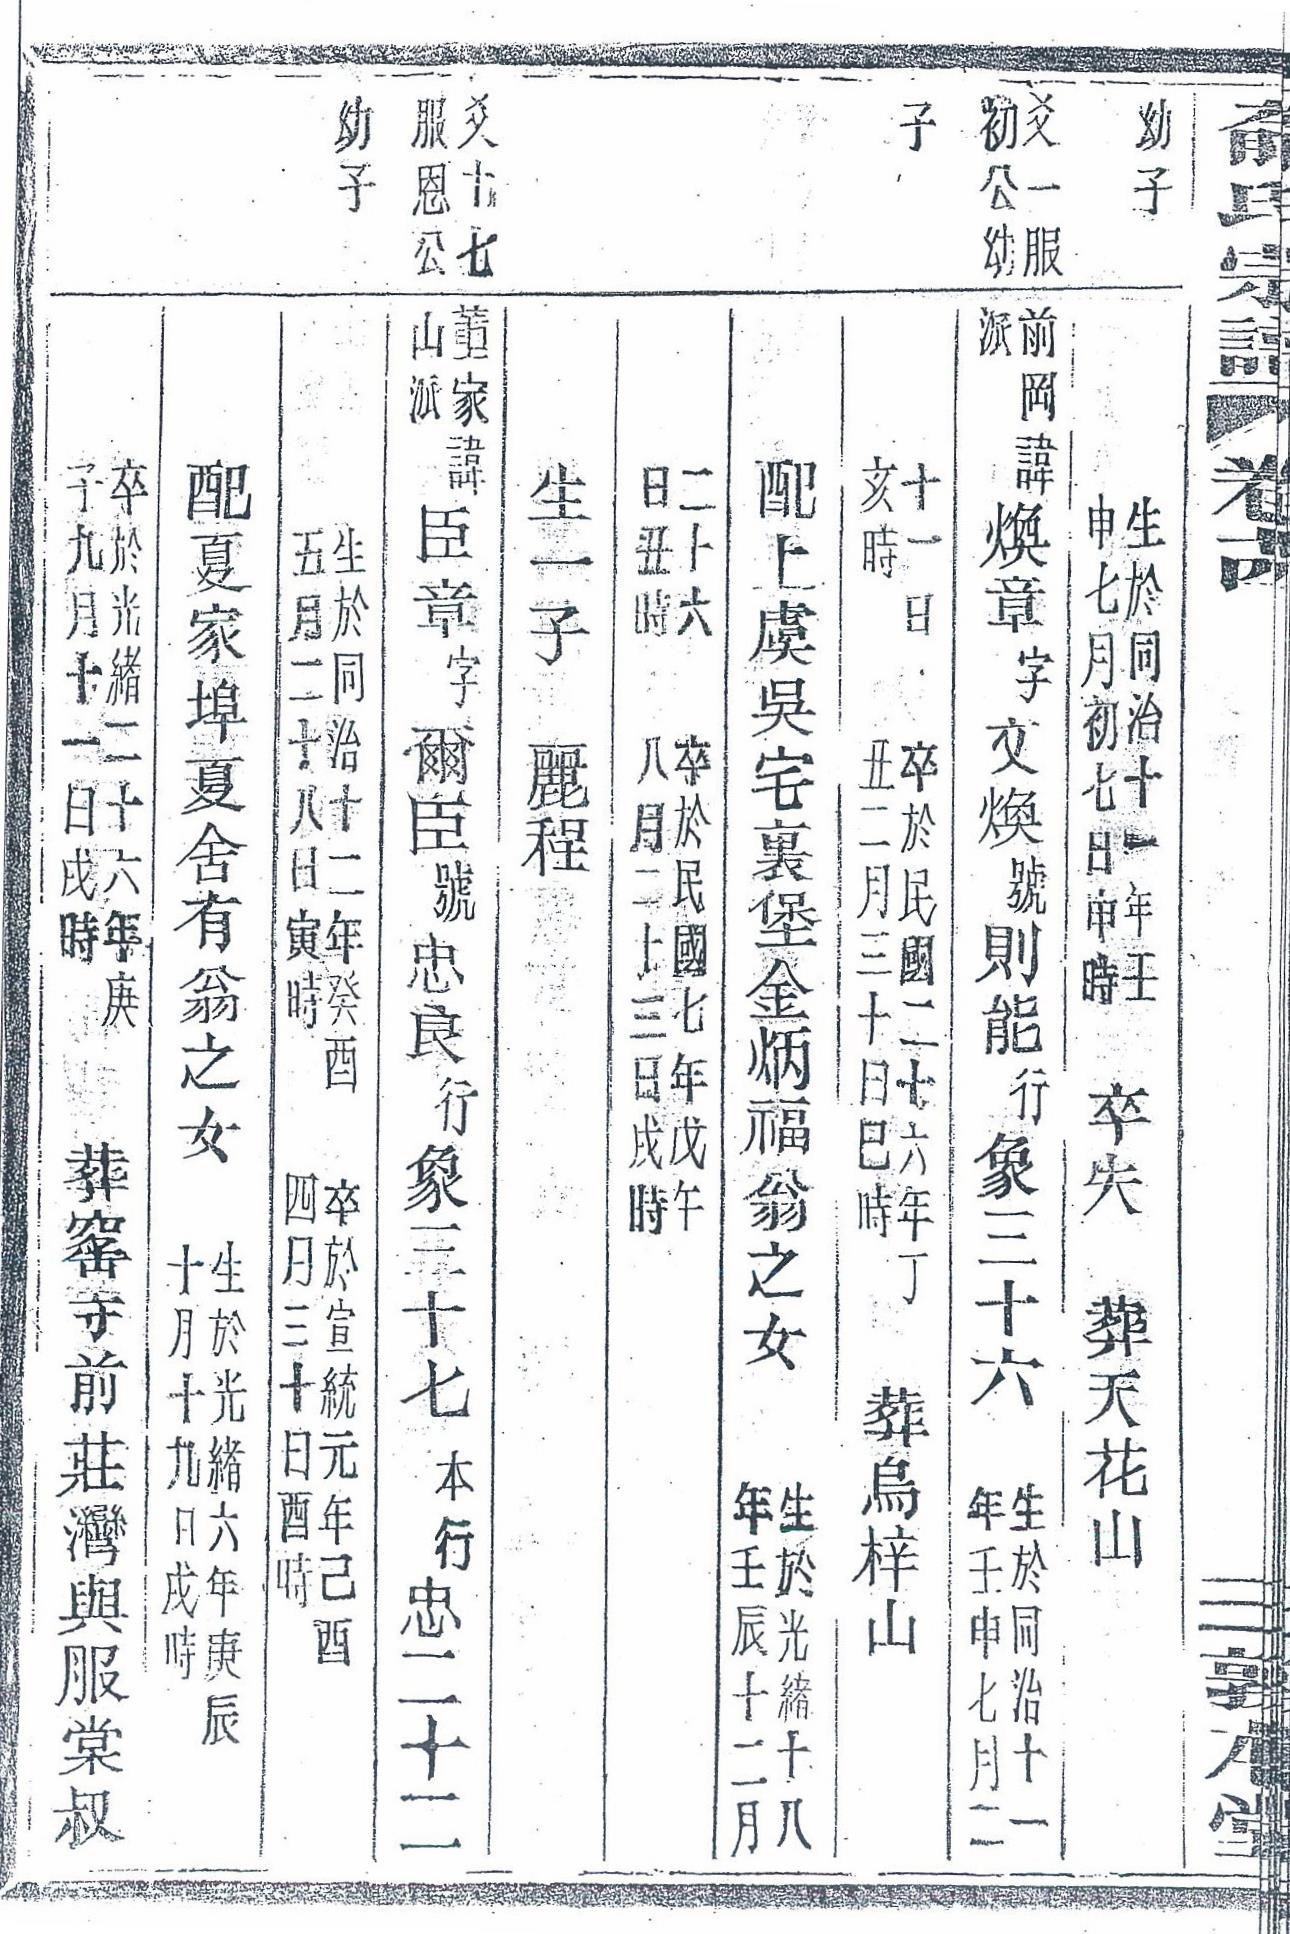 俞氏宗譜 卷 三 敦 堂
幼子
生於同治十一年壬
申七月初七日申時
卒失 葬天花山
爻一服
初公幼
前岡
派
諱煥章字文煥號則能行象三十六
生於同治十一
年壬申七月二
子
十一日
亥時
卒於民國二十六年丁
丑二月三十日巳時
葬烏梓山
配上虞吳宅裏堡金炳福翁之女
生於光緒十八
年壬辰十二月
二十六
日丑時
卒於民國七年戊午
八月二十三日戌時
生一子 麗程
爻十七
服恩公
董家
山派
諱臣章字爾臣號忠良行象三十七本行忠二十二
幼子
生於同治十二年癸酉
五月二十八日寅時
卒於宣統元年己酉
四月三十日酉時
配夏家埠夏舍有翁之女
生於光緒六年庚辰
十月十九日戌時
卒於光緒二十六年庚
子九月十一日戌時
葬窰寺前莊灣與服棠叔